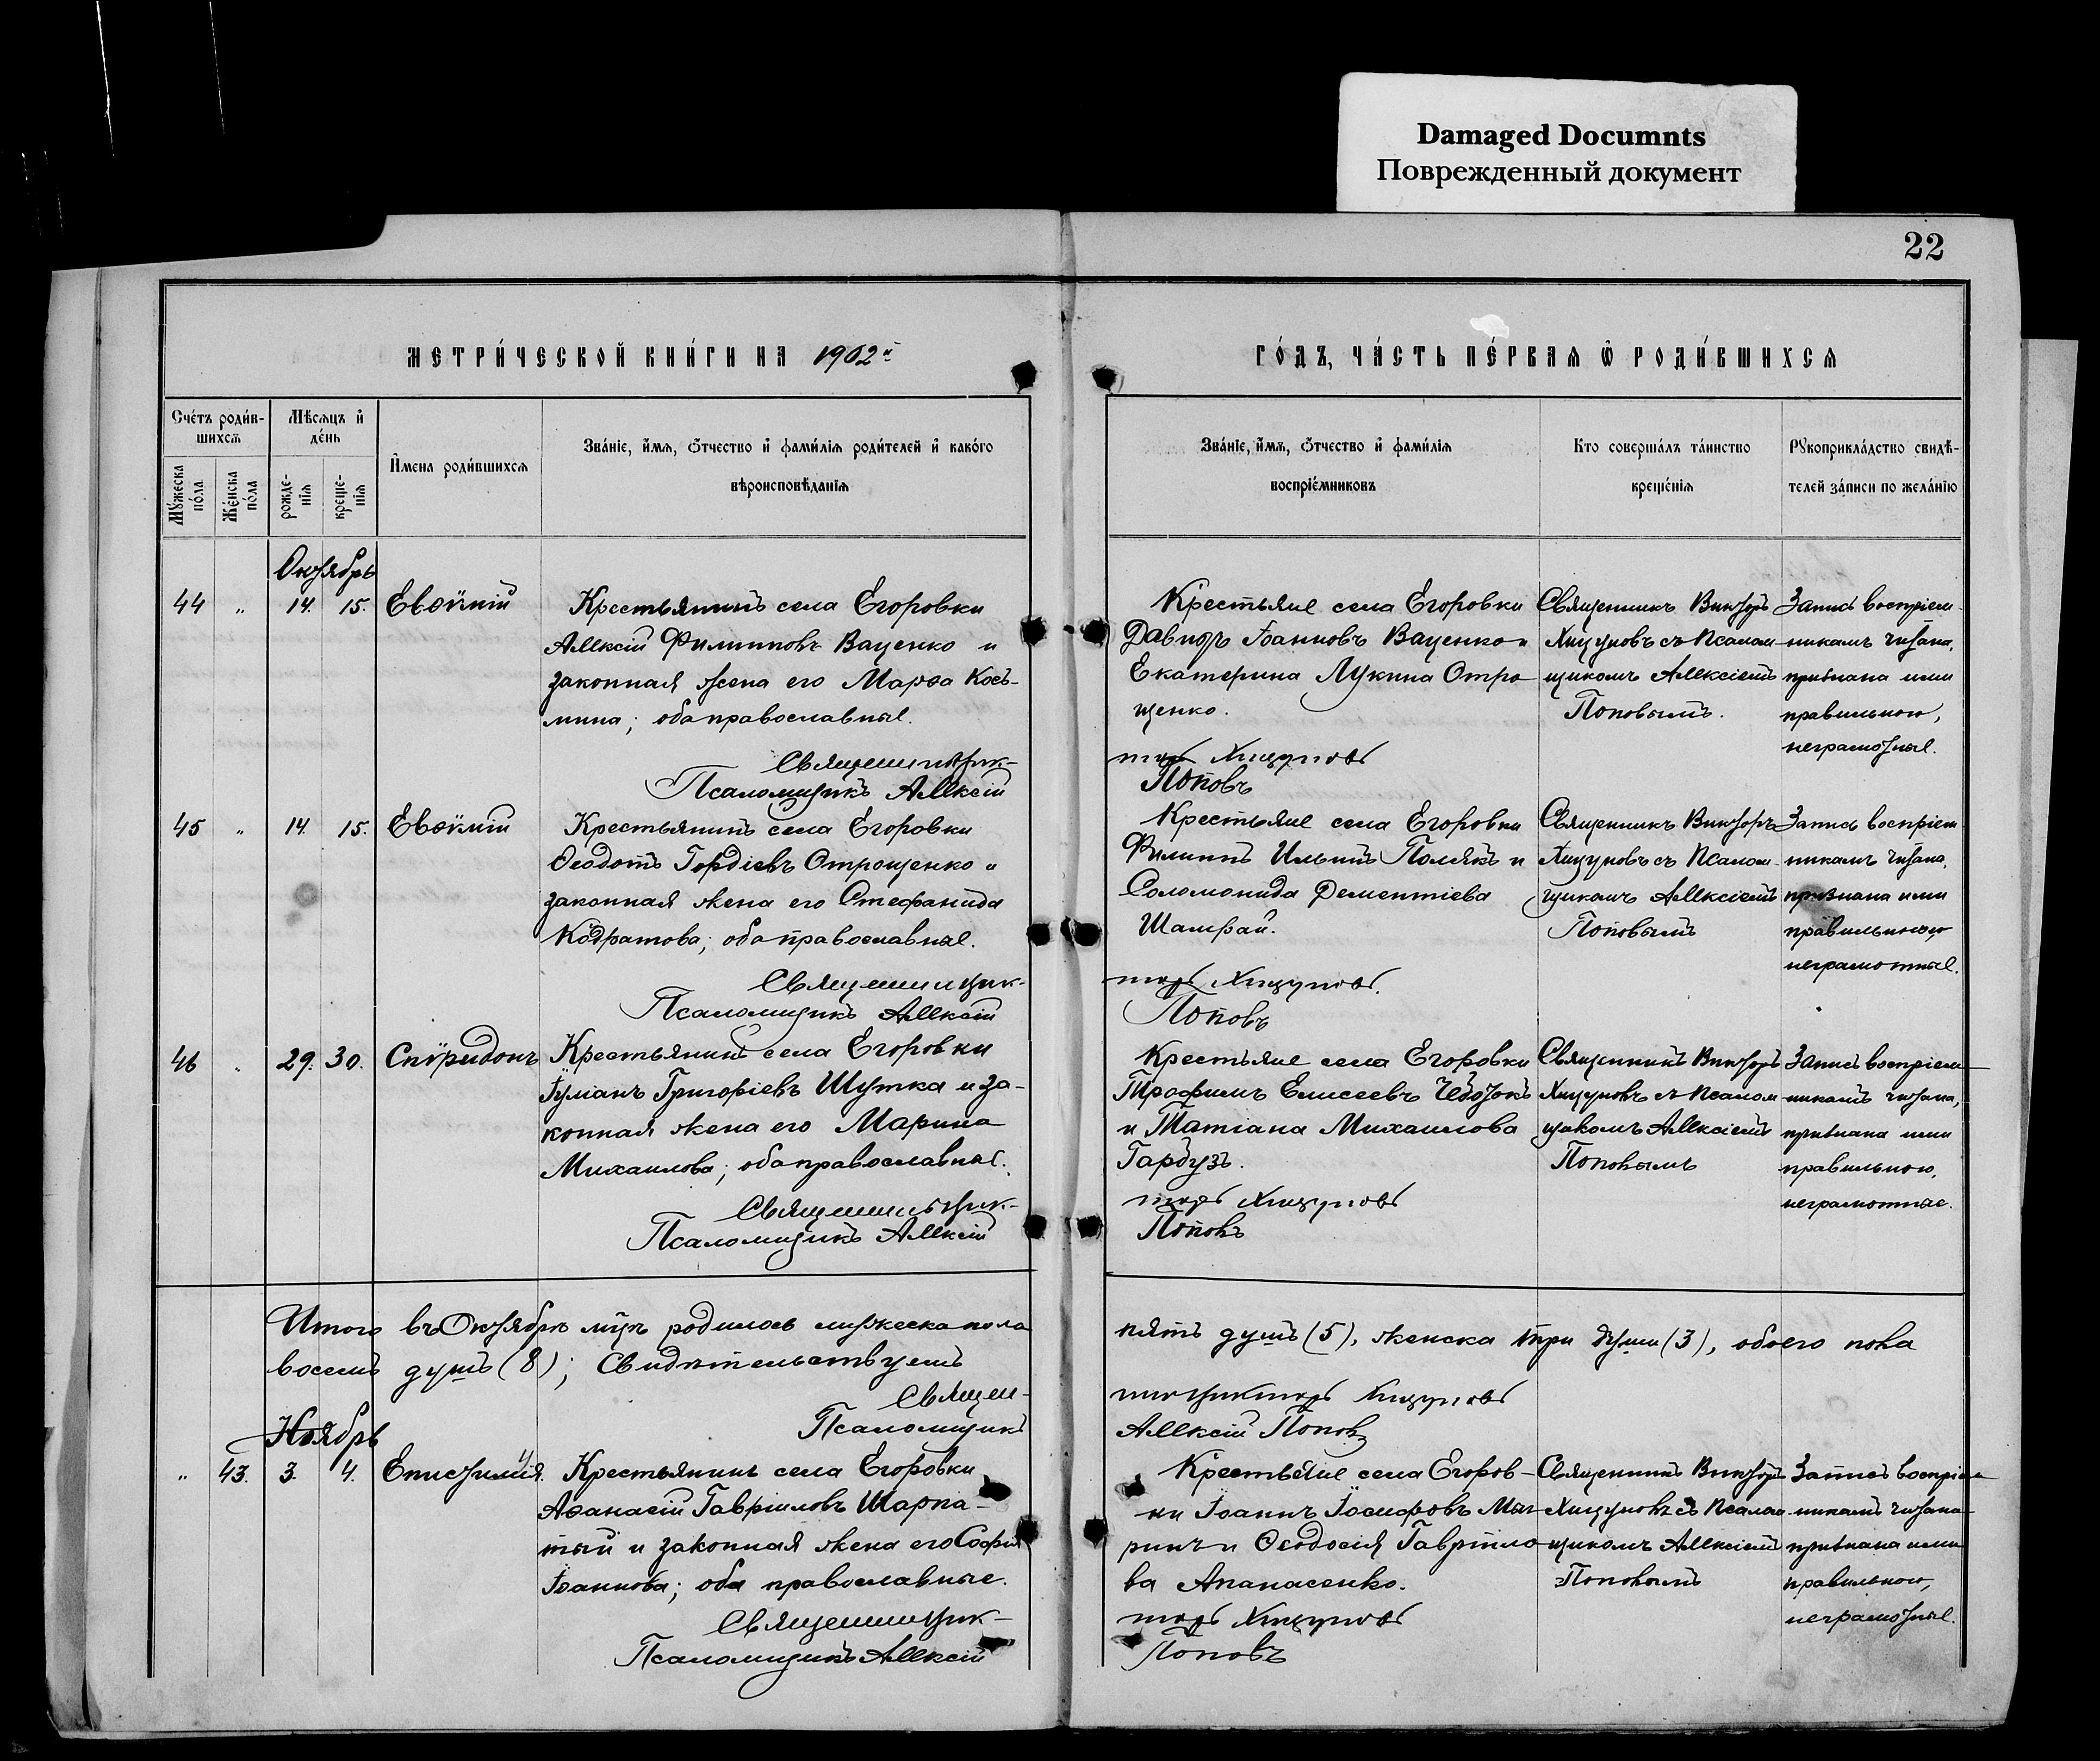 Damaged Documnts
Поврежденный документ
22
МЕТРИ́ЧЕСКОЙ КНИ́ГИ НА 1902й
ГО́ДЪ, ЧА́СТЬ ПЕ́РВАѦ Ѽ РОДИ́ВШИХСѦ
Сче́тъ роди́в-
шихсѧ
Мѣ́сѧцъ и҆
де́нь
Мꙋ́жеска
по́ла
Же́нска
по́ла
рожде-
нїѧ
креще-
нїѧ
И҆́мена роди́вшихсѧ
Зва́нїе, и҆́мѧ, ѻ҆́тчество и҆ фами́лїѧ роди́телей и҆ како́го
вѣроисповѣ́данїѧ
Зва́нїе, и҆́мѧ, ѻ҆́тчество и҆ фами́лїѧ
воспрїе́мниковъ
Кто соверша́лъ та́инство
креще́нїѧ
Рꙋкоприкла́дство свидѣ́-
телей за́писи по жела́нїю
Октябрь
44 „ 14. 15. Евѳимій
Крестьянинъ села Егоровки
Алексій Филиповъ Ваценко и
законная жена его Марѳа Кось-
мина; оба православные.
Священникъ Вик-
Псаломщикъ Алексій
Крестьяне села Егоровки
Давидъ Іоанновъ Ваценко и
Екатерина Лукина Отро-
щенко.
торъ Хицуновъ
Поповъ
Священникъ Викторъ
Хицуновъ съ Псалом-
щикомъ Алексіемъ
Поповымъ.
Запись воспріем-
никамъ читана,
признана ими
правильною,
неграмотные.
45 „ 14. 15. Евѳимій
Крестьянинъ села Егоровки
Ѳеодотъ Гордіевъ Отрощенко и
законная жена его Стефанида
Кодратова; оба православные.
Священникъ Вик-
Псаломщикъ Алексій
Крестьяне села Егоровки
Филиппъ Ильинъ Полякъ и
Соломонида Дементіева
Шамрай.
торъ Хицуновъ.
Поповъ
Священникъ Викторъ
Хицуновъ съ Псалом-
щикомъ Алексіемъ
Поповымъ
Запись воспріем-
никамъ читана,
признана ими
правильною,
неграмотные.
46 „ 29. 30. Спѵридонъ
Крестьянинъ села Егоровки
Іуліанъ Григоріевъ Шутка и за-
конная жена его Марина
Михаилова; оба православные.
Священникъ Вик-
Псаломщикъ Алексій
Крестьяне села Егоровки
Трофимъ Елисеевъ
и Татіана Михаилова
Гарбузъ.
торъ Хицуновъ
Поповъ
Священникъ Викторъ
Хицуновъ съ Псалом-
щикомъ Алексіемъ
Поповымъ
Запись воспріем-
никамъ читана,
признана ими
правильною,
неграмотные.
Итого въ Октябрѣ мцѣ родилось мужеска пола
пять душъ (5), женска три души (3), обоего пола
восемь душъ (8); Свидѣтельствуемъ
Священ-
никъ Викторъ Хицуновъ
Псаломщикъ
Алексій Поповъ
Ноябрь
„ 43. 3. 4. Епистимія.
Крестьянинъ села Егоровки
Аѳанасій Гавріиловъ Шарпа-
тый и законная жена его Софія
Іоаннова; оба православные.
Священникъ Вик-
Псаломщикъ Алексій
Крестьяне села Егоров-
ки Іоаннъ Іосифовъ
и Ѳеодосія Гавріило-
ва Апанасенко.
торъ Хицуновъ
Поповъ
Священникъ Викторъ
Хицуновъ съ Псалом-
щикомъ Алексіемъ
Поповымъ
Запись воспріем-
никамъ читана
признана ими
правильною,
неграмотные.